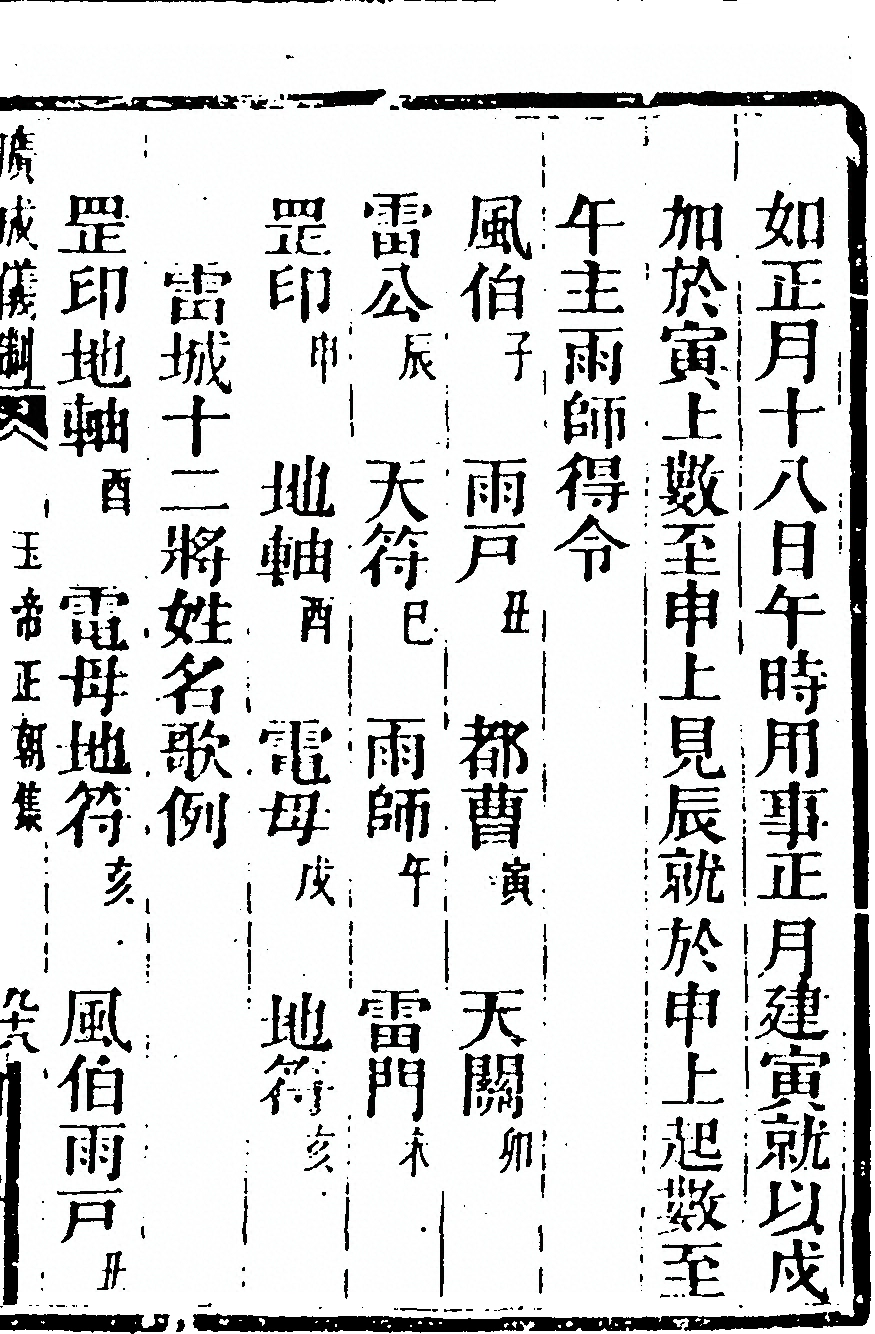 如正月十八日午時用事正月建寅就以戌
加於寅上數至申上見辰就於申上起數至
午主雨師得令
風伯子 雨戸丑 都曹寅 天關卯
雷公辰 天符巳 雨師午 雷門未
罡印申 地軸酉 電母戌 地符亥
雷城十二將姓名歌例
罡印地軸酉 電母地符亥 風伯雨戸丑
廣成儀制 玉帝正朝集 九十六